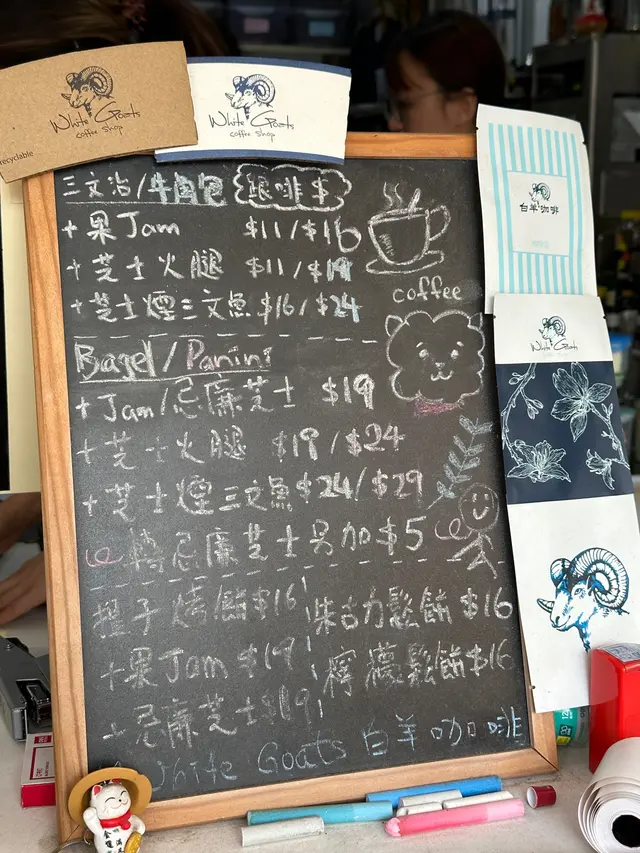 White Goats
coffee shop
recyclable
White Goats
coffee shop
白羊咖啡
White Goats
三文治/牛角包 跟啡享
+果Jam $11/$16
+芝士火腿 $11/$19
+芝士煙三文魚 $16/$24
coffee
Bagel/Panini
+Jam/忌廉芝士 $19
+芝士火腿 $19/$24
+芝士煙三文魚 $24/$29
轉忌廉芝士只加$5
提子烤餅$16
+果Jam $19
+忌廉芝士$19
朱古力鬆餅 $16
檸檬鬆餅$16
White Goats 白羊咖啡